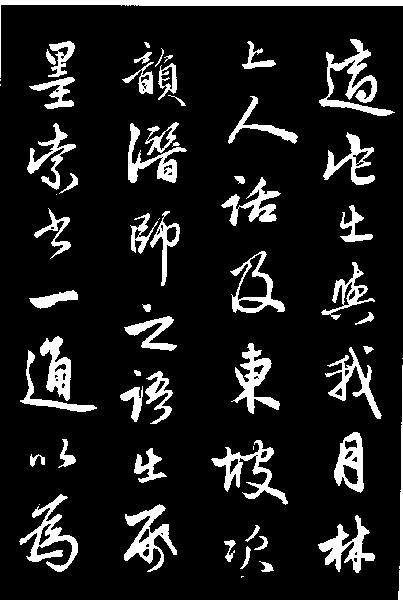 適佗生與我月林
上人話及東坡次
韻潛師之語生
墨索書一通以為